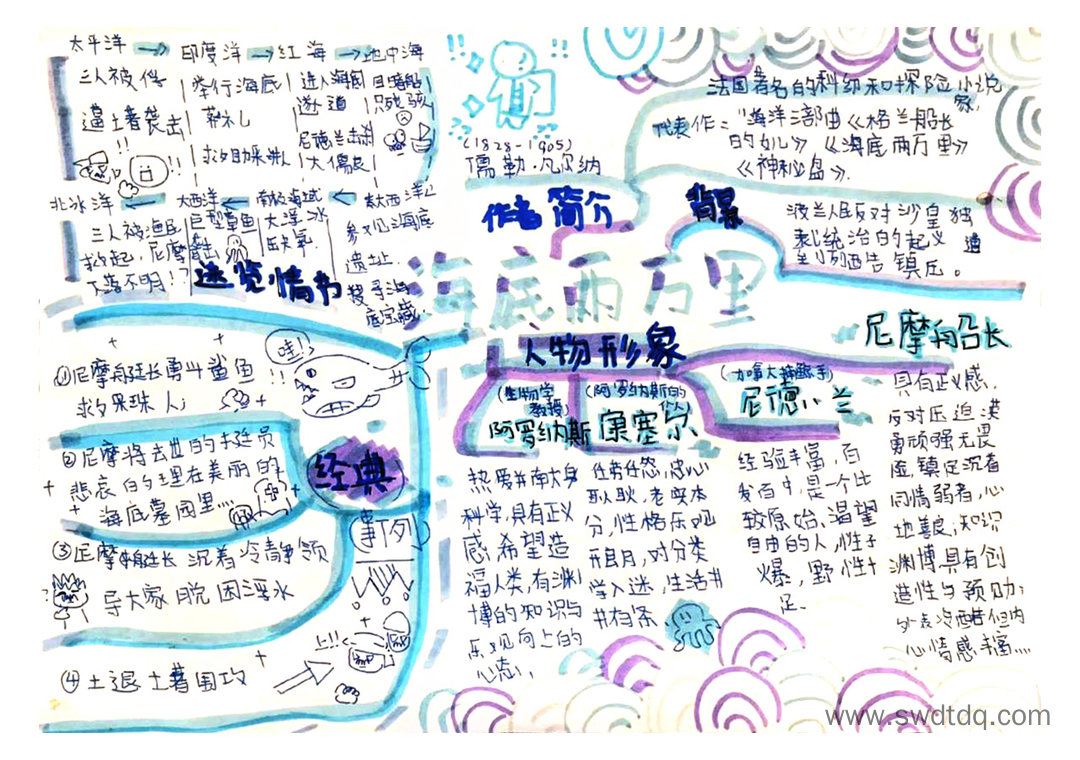 太平洋 → 印度洋 → 红海 → 地中海
三人被俘
逼土著袭击!!
举行海底
葬礼
救助采珠人
进入海底
遂道
尼德兰击刺
大儒艮
目睹船
只残骸
北冰洋 ← 大西洋 ← 南极海域 ← 大西洋
三人被渔民
救起,尼摩
下落不明!?
巨型章鱼
袭击
大浮冰
缺氧
参观海底
遗址.
搜寻海
底宝藏..
速览情节
(1828-1905)
儒勒·凡尔纳
作者简介
法国著名的科幻和探险小说
家,
代表作:"海洋三部曲《格兰船长
的女儿》《海底两万里》
《神秘岛》.
背景
波兰人民反对沙皇独
裁统治的起义 遭
到残酷镇压。
海底两万里
人物形象
(生物学
教授)
阿罗纳斯
热爱并南大身
科学,具有正义
感,希望造
福人类,有渊
博的知识与
乐观向上的
心态,
(阿罗纳斯的
仆人)
康塞尔
任劳任怨,忠心
耿耿,老实本
分,性格乐观
开朗,对分类
学入迷,生活井
井有条
(加拿大捕鲸手)
尼德·兰
经验丰富,百
发百中,是一个比
较原始、渴望
自由的人,性子
爆,野性十
足.
尼摩船长
具有正义感,
反对压迫,
勇顽强无畏
险,镇定沉着
同情弱者,心
地善良,知识
渊博具有创
造性与预见力;
外表冷酷但内
心情感丰富...
经典
事例
①尼摩船长勇斗鲨鱼
救采珠人;
哇!!
②尼摩将去世的艇员
悲哀的埋在美丽的
海底墓园里...
③尼摩船长沉着冷静领
导大家脱困浮冰
④土退土著围攻
上!!
www.swdtdq.com